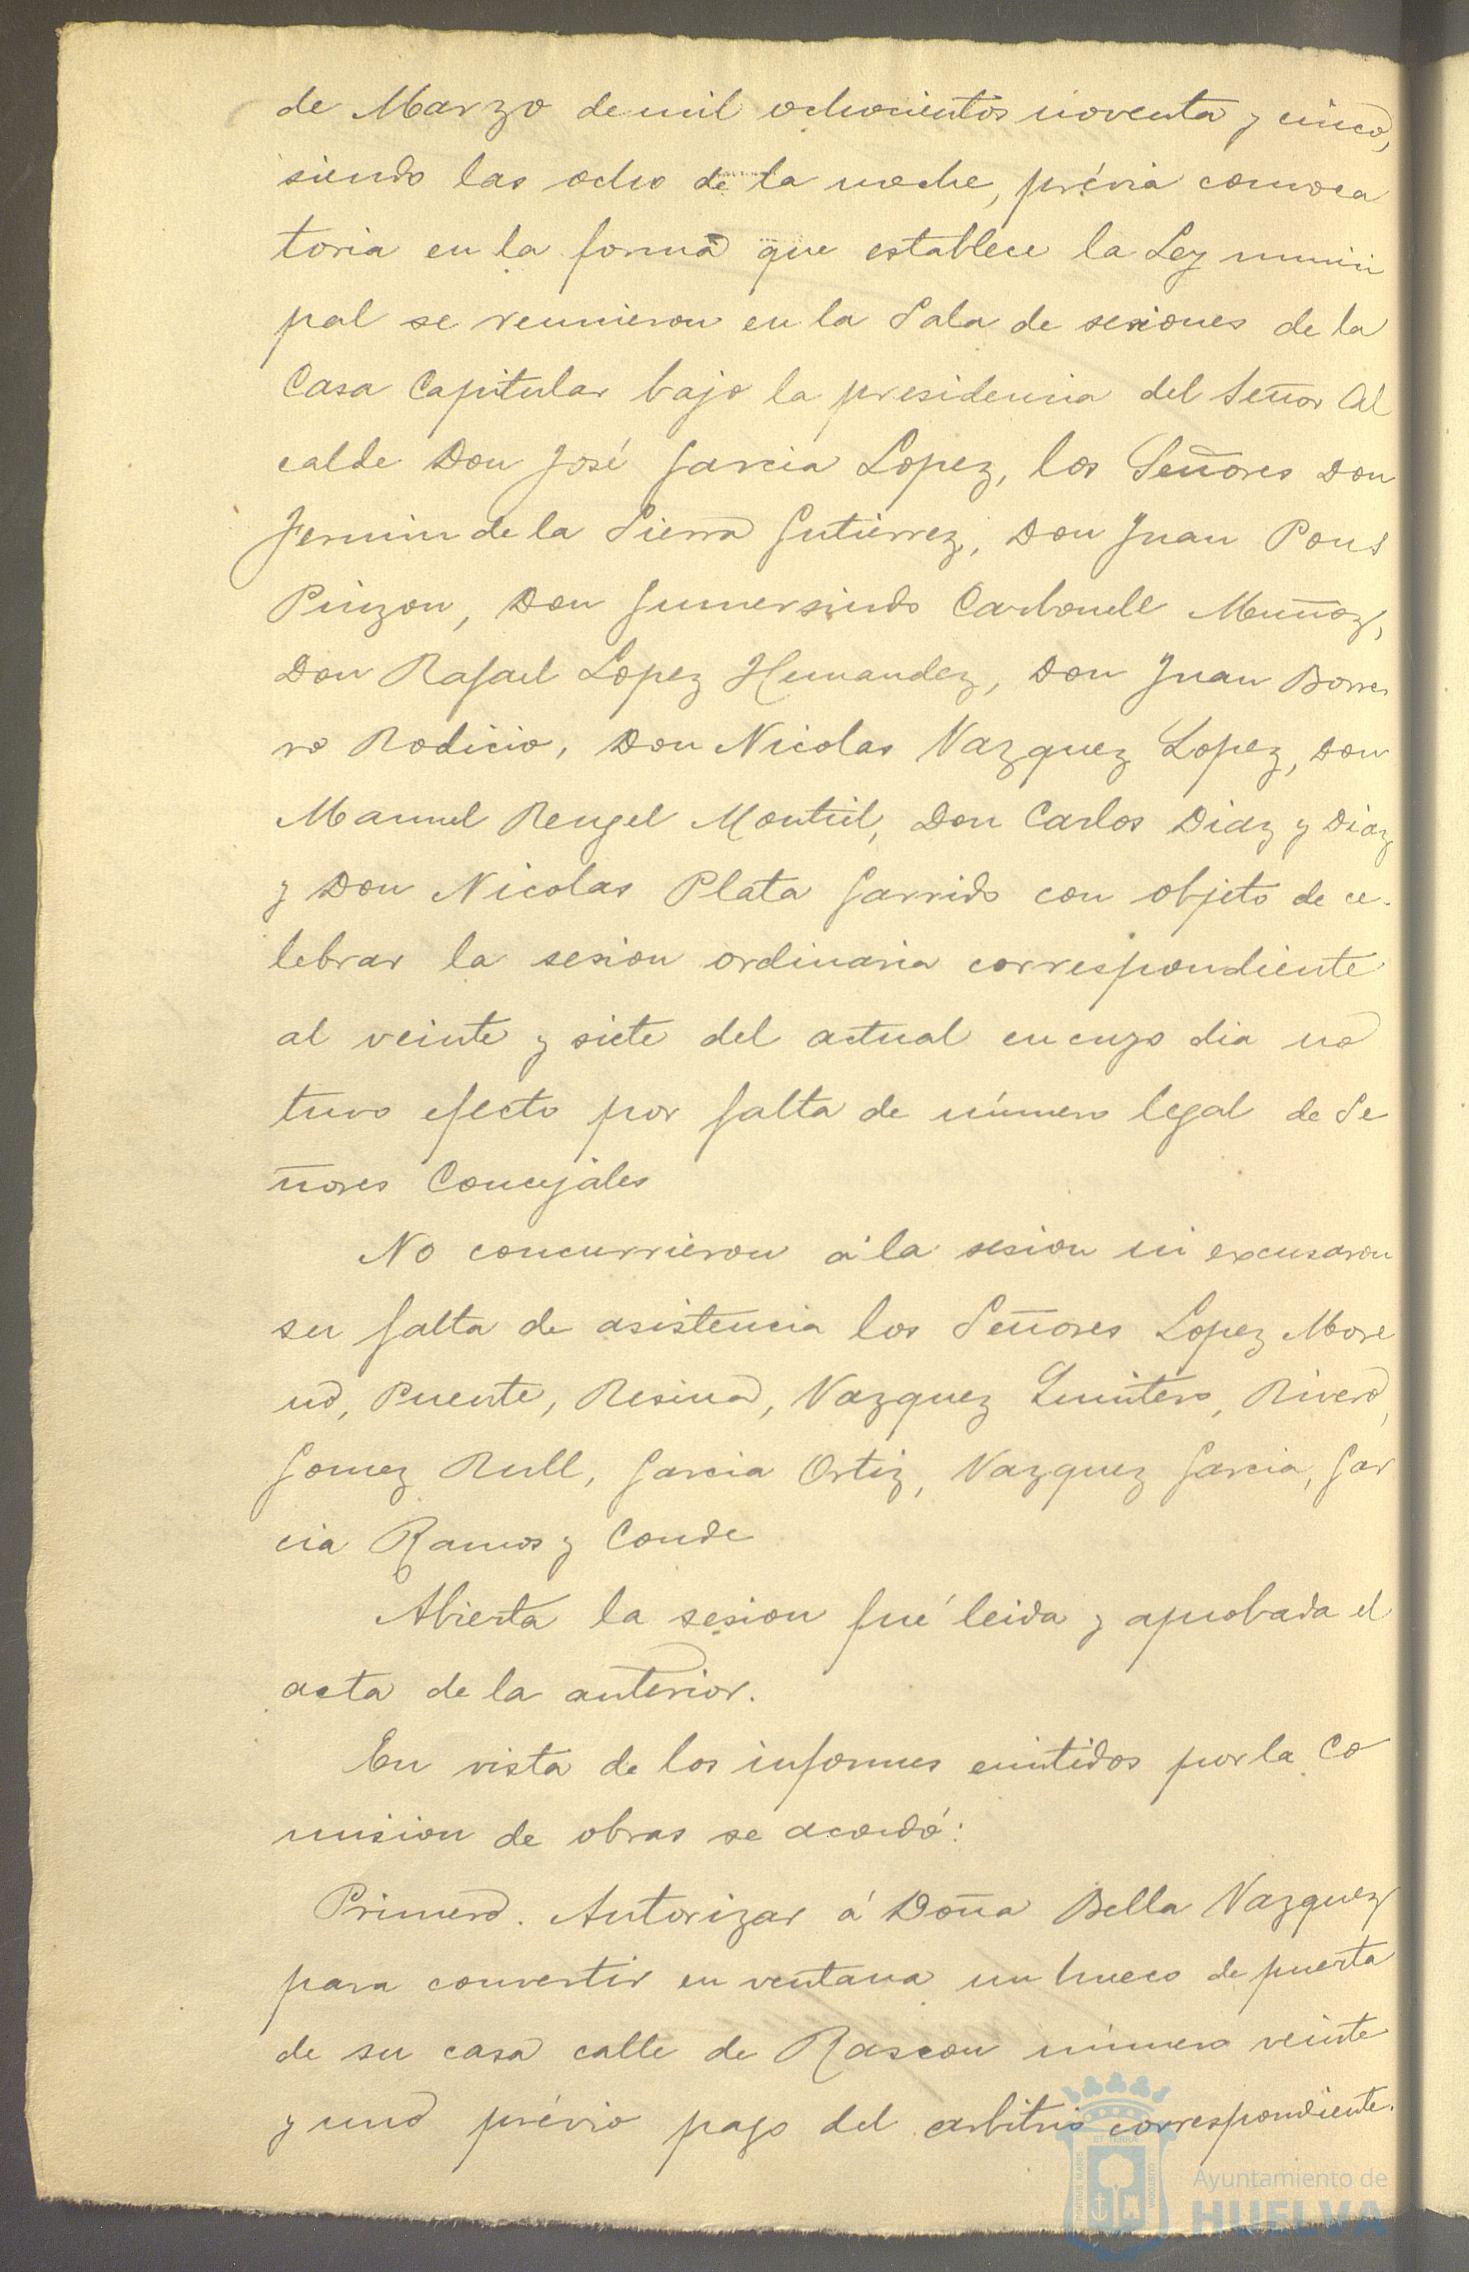 de Marzo de mil ochocientos noventa y cinco,
siendo las ocho de la noche, prévia convoca
toria en la forma que establece la Ley munici
pal se reunieron en la Sala de sesiones de la
Casa Capitular bajo la presidencia del Señor Al
calde Don José Garcia Lopez, los Señores Don
Fermin de la Sierra Gutierrez, Don Juan Pons
Pinzon, Don Gumersindo Carbonell Muñoz,
Don Rafael Lopez Hernandez, Don Juan Borre
ro Rodicio, Don Nicolas Vazquez Lopez, Don
Manuel Rengel Montiel, Don Carlos Diaz y Diaz
y Don Nicolas Plata Garrido con objeto de ce-
lebrar la sesion ordinaria correspondiente
al veinte y siete del actual en cuyo dia no
tuvo efecto por falta de número legal de Se
ñores Concejales
No concurrieron á la sesion ni excusaron
su falta de asistencia los Señores Lopez More
no, Puente, Resina, Vazquez Quintero, Rivero,
Gomez Rull, Garcia Ortiz, Vazquez Garcia, Gar
cia Ramos y Conde
Abierta la sesion fué leida y aprobada el
acta de la anterior.
En vista de los informes emitidos por la Co
mision de obras se acordó:
Primero. Autorizar á Doña Bella Vazquez
para convertir en ventana un hueco de puerta
de su casa calle de Rascon número veinte
y uno prévio pago del arbitrio correspondiente.
Ayuntamiento de
HUELVA